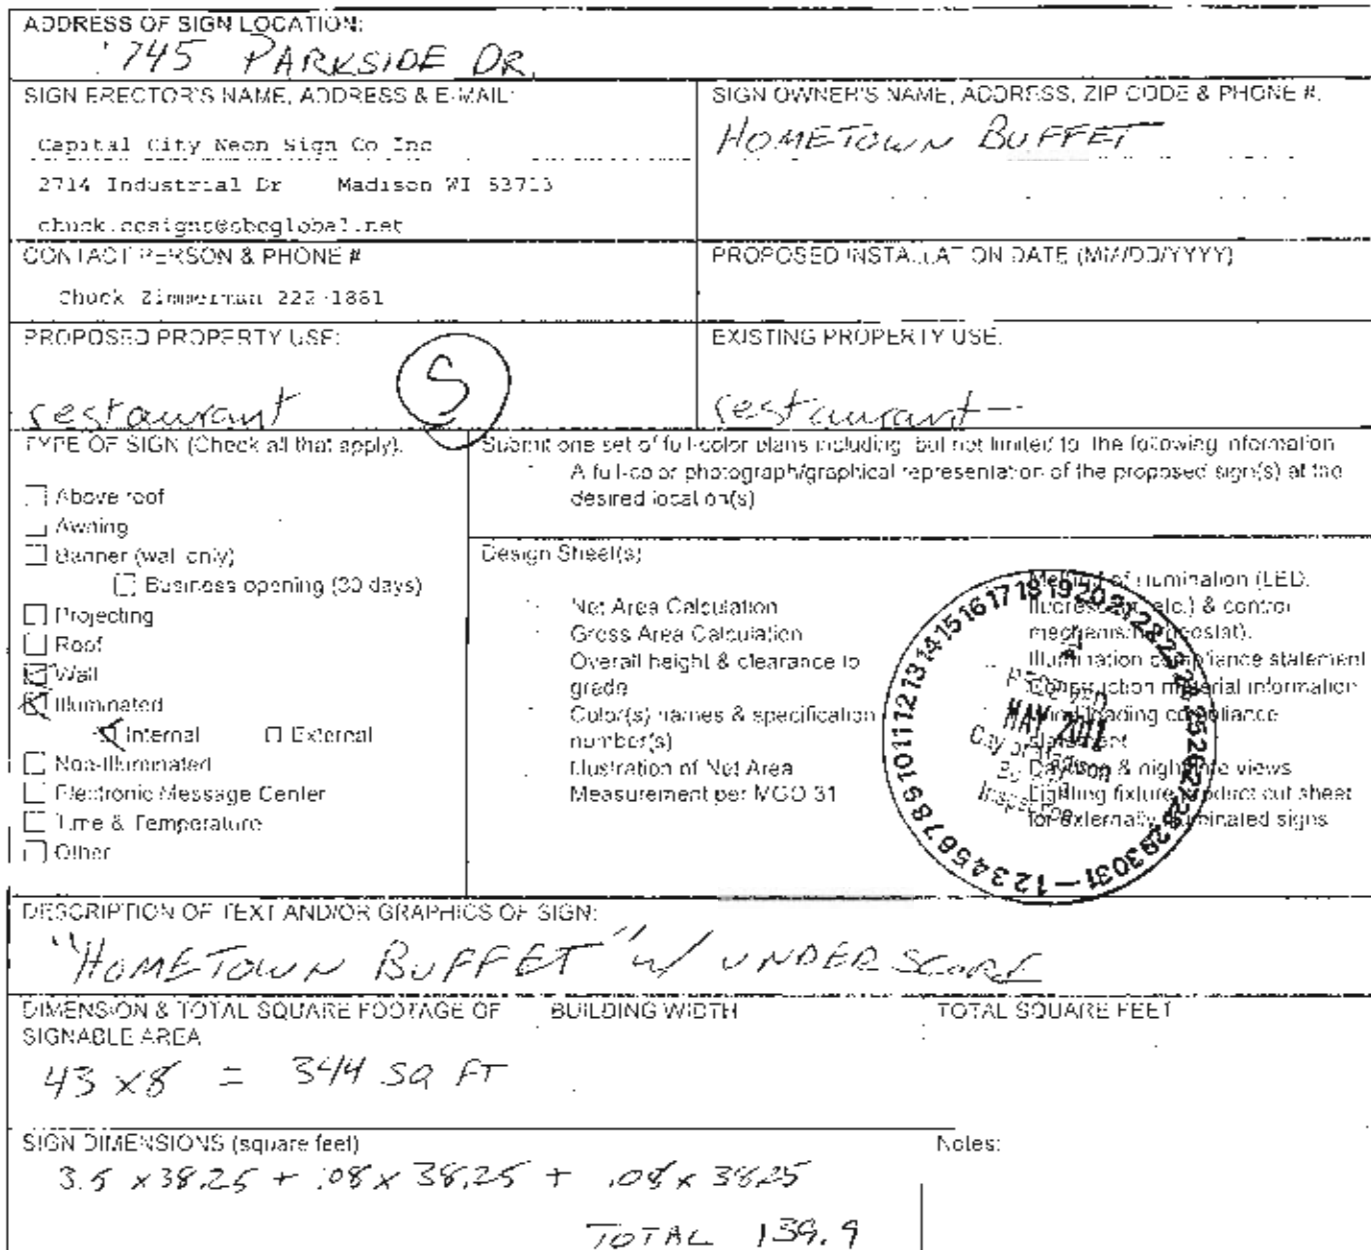 ADDRESS OF SIGN LOCATION:
745 PARKSIDE DR.
SIGN ERECTOR'S NAME, ADDRESS & E-MAIL:
Capital City Neon Sign Co Inc
2714 Industrial Dr Madison WI 53713
SIGN OWNER'S NAME, ADDRESS, ZIP CODE & PHONE #.
HOMETOWN BUFFET
CONTACT PERSON & PHONE #
Chuck Zimmerman 222-1881
PROPOSED INSTALLATION DATE (MM/DD/YYYY)
PROPOSED PROPERTY USE:
restaurant
S
EXISTING PROPERTY USE.
restaurant
TYPE OF SIGN (Check all that apply).
Above roof
Awning
Banner (wall only)
Business opening (30 days)
Projecting
Roof
Wall
Illuminated
Internal External
Non-Illuminated
Electronic Message Center
Time & Temperature
Other
Submit one set of full-color plans including but not limited to the following information
A full-color photograph/graphical representation of the proposed sign(s) at the
desired location(s)
Design Sheet(s)
Net Area Calculation
Gross Area Calculation
Overall height & clearance to
grade
Color(s) names & specification
number(s)
Illustration of Net Area
Measurement per MGO 31
Method of illumination (LED,
fluorescent, etc.) & control
mechanism
Illumination compliance statement
Construction material information
Wind loading compliance
statement
Daytime & nighttime views
Lighting fixture product cut sheet
for externally illuminated signs
1 2 3 4 5 6 7 8 9 10 11 12 13 14 15 16 17 18 19 20 21 22 23 24 25 26 27 28 29 30 31
MAY 2011
City of Madison
Inspection
DESCRIPTION OF TEXT AND/OR GRAPHICS OF SIGN:
"HOMETOWN BUFFET" w/ UNDERSCORE
DIMENSION & TOTAL SQUARE FOOTAGE OF
SIGNABLE AREA
43 x 8 = 344 SQ FT
BUILDING WIDTH
TOTAL SQUARE FEET
SIGN DIMENSIONS (square feet)
3.5 x 38.25 + .08 x 38.25 + .08 x 38.25
TOTAL 139.9
Notes: